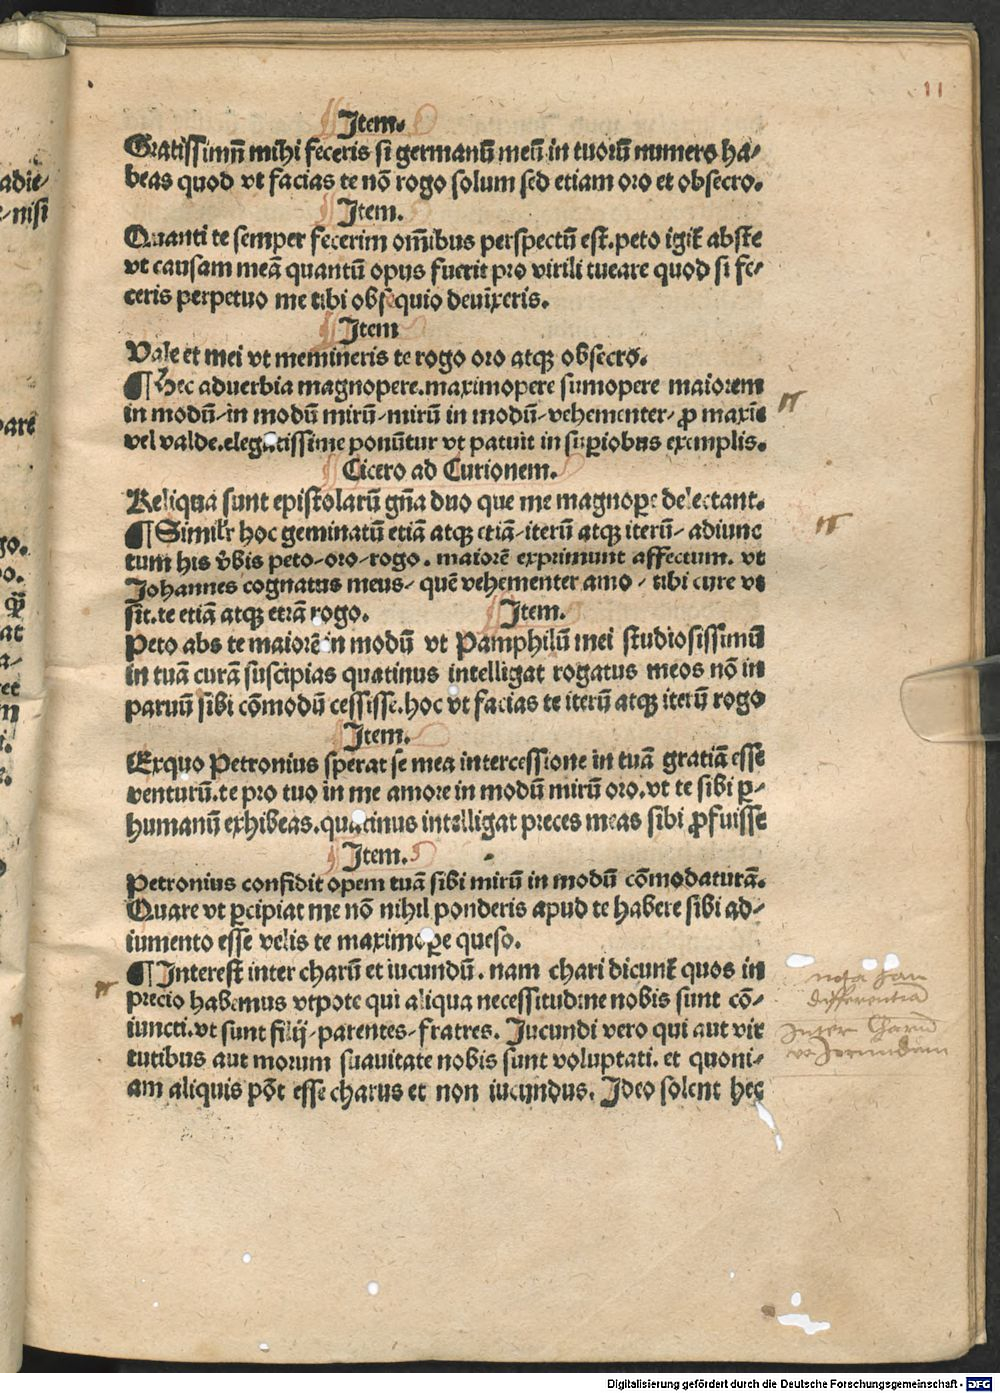 11
Item.
Gratissimū mihi feceris si germanū meū in tuorū numero ha/
beas quod vt facias te nō rogo solum sed etiam oro et obsecro.
Item.
Quanti te semper fecerim om̄ibus perspectū est.peto igit̄ abste
vt causam meā quantū opus fuerit pro virili tueare quod si fe/
ceris perpetuo me tibi obsequio deuixeris.
Item
Vale et mei vt memineris te rogo oro atqꝫ obsecro.
¶ Hec aduerbia magnopere.maximopere sumopere maiorem
in modū/in modū mirū/mirū in modū/vehementer/ꝓ maxie
vel valde.elegātissime ponūtur vt patuit in suꝑiobus exemplis.
Cicero ad Curionem.
Reliqua sunt epistolarū gn̄a duo que me magnopere delectant.
¶ Similr̄ hoc geminatū etiā atqꝫ etiā/iterū atqꝫ iterū/adiunc
tum his v̄bis peto/oro/rogo. maiorē exprimunt affectum. vt
Johannes cognatus meus/ quē vehementer amo / tibi cure vt
sit.te etiā atqꝫ etiā rogo. Item.
Peto abs te maiorē in modū vt Pamphilū mei studiosissimū
in tuā curā suscipias quatinus intelligat rogatus meos nō in
paruū sibi cōmodū cessisse.hoc vt facias te iterū atqꝫ iterū rogo
Item.
Exquo Petronius sperat se mea intercessione in tuā gratiā esse
venturū.te pro tuo in me amore in modū mirū oro.vt te sibi ꝑ/
humanū exhibeas.quatinus intelligat preces meas sibi ꝓfuisse
Item.
Petronius confidit opem tuā sibi mirū in modū cōmodaturā.
Quare vt ꝑcipiat me nō nihil ponderis apud te habere sibi ad/
iumento esse velis te maximoꝑe queso.
¶ Interest inter charū et iucundū. nam chari dicunt̄ quos in
precio habemus vtpote qui aliqua necessitudine nobis sunt cō/
iuncti.vt sunt filij/parentes/fratres. Jucundi vero qui aut vir
tutibus aut morum suauitate nobis sunt voluptati. et quoni/
am aliquis pōt esse charus et non iucundus. Ideo solent hec
nota
differentia
inter Charū
Digitalisierung gefördert durch die Deutsche Forschungsgemeinschaft - DFG